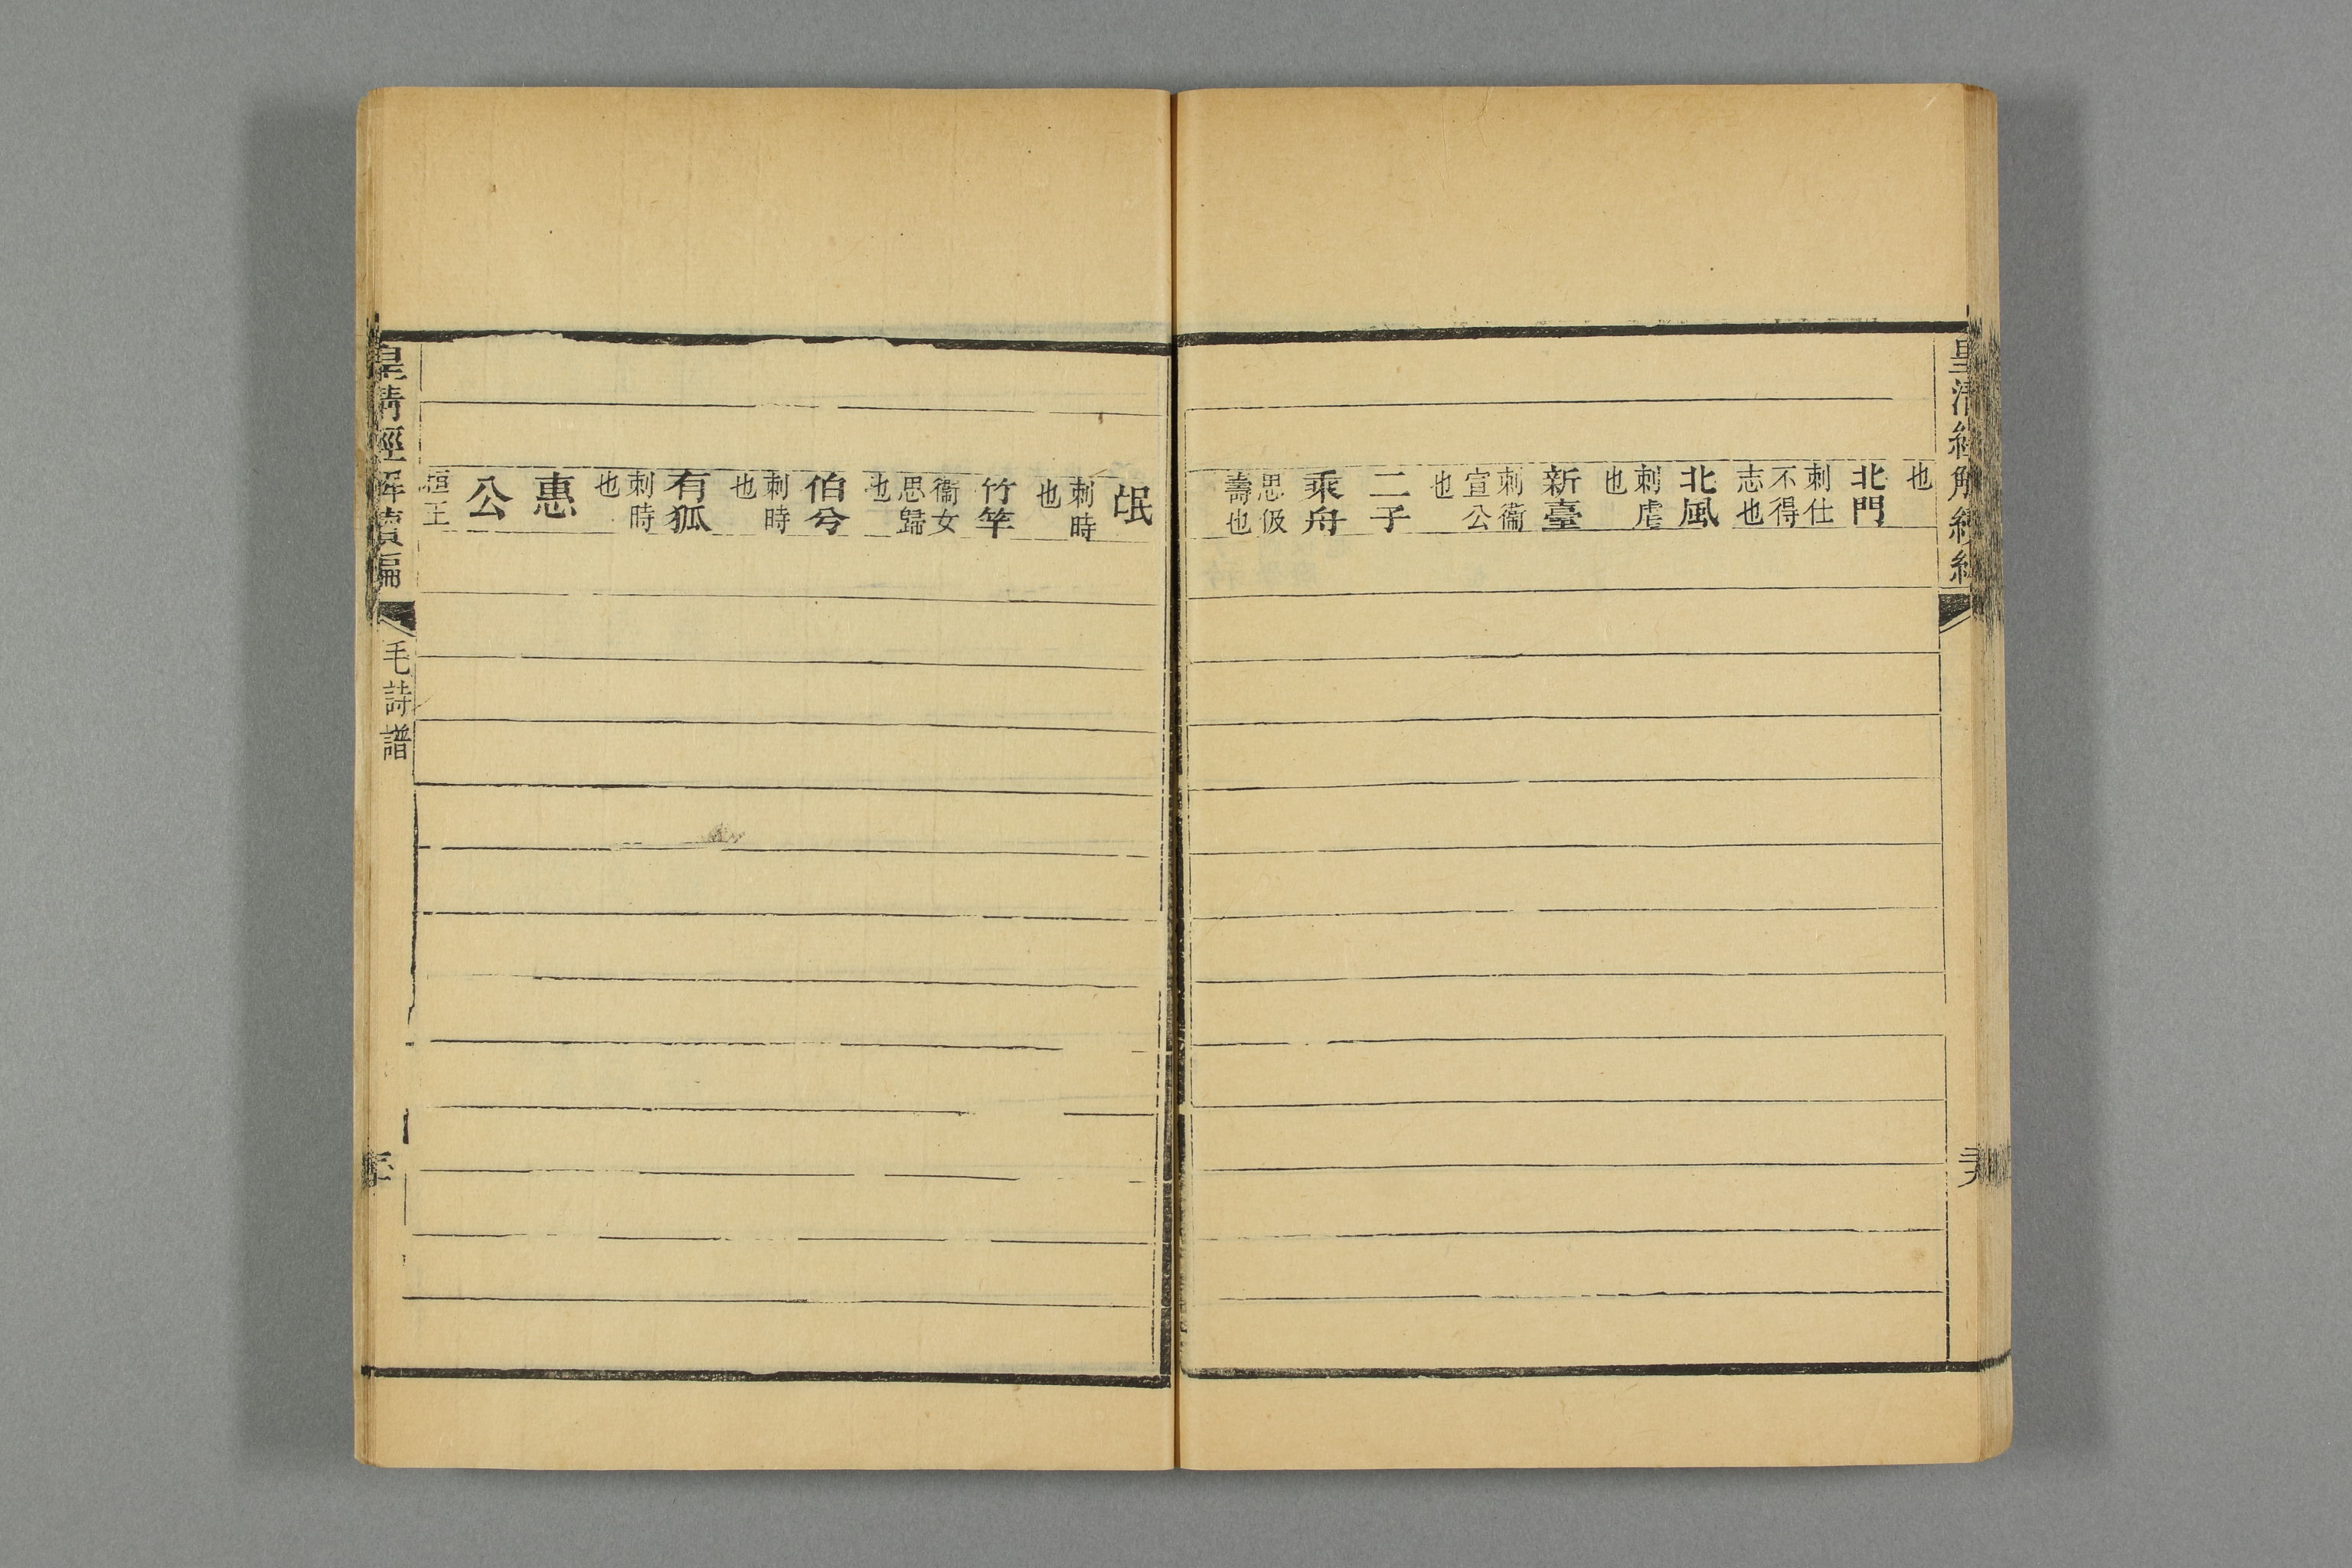 也
北門
刺仕
不得
志也
北風
刺虐
也
新臺
刺衞
宣公
也
二子
乘舟
思伋
壽也
氓
刺時
也
竹竿
衞女
思歸
也
伯兮
刺時
也
有狐
刺時
也
惠
公
桓王
皇清經解續編
毛詩譜